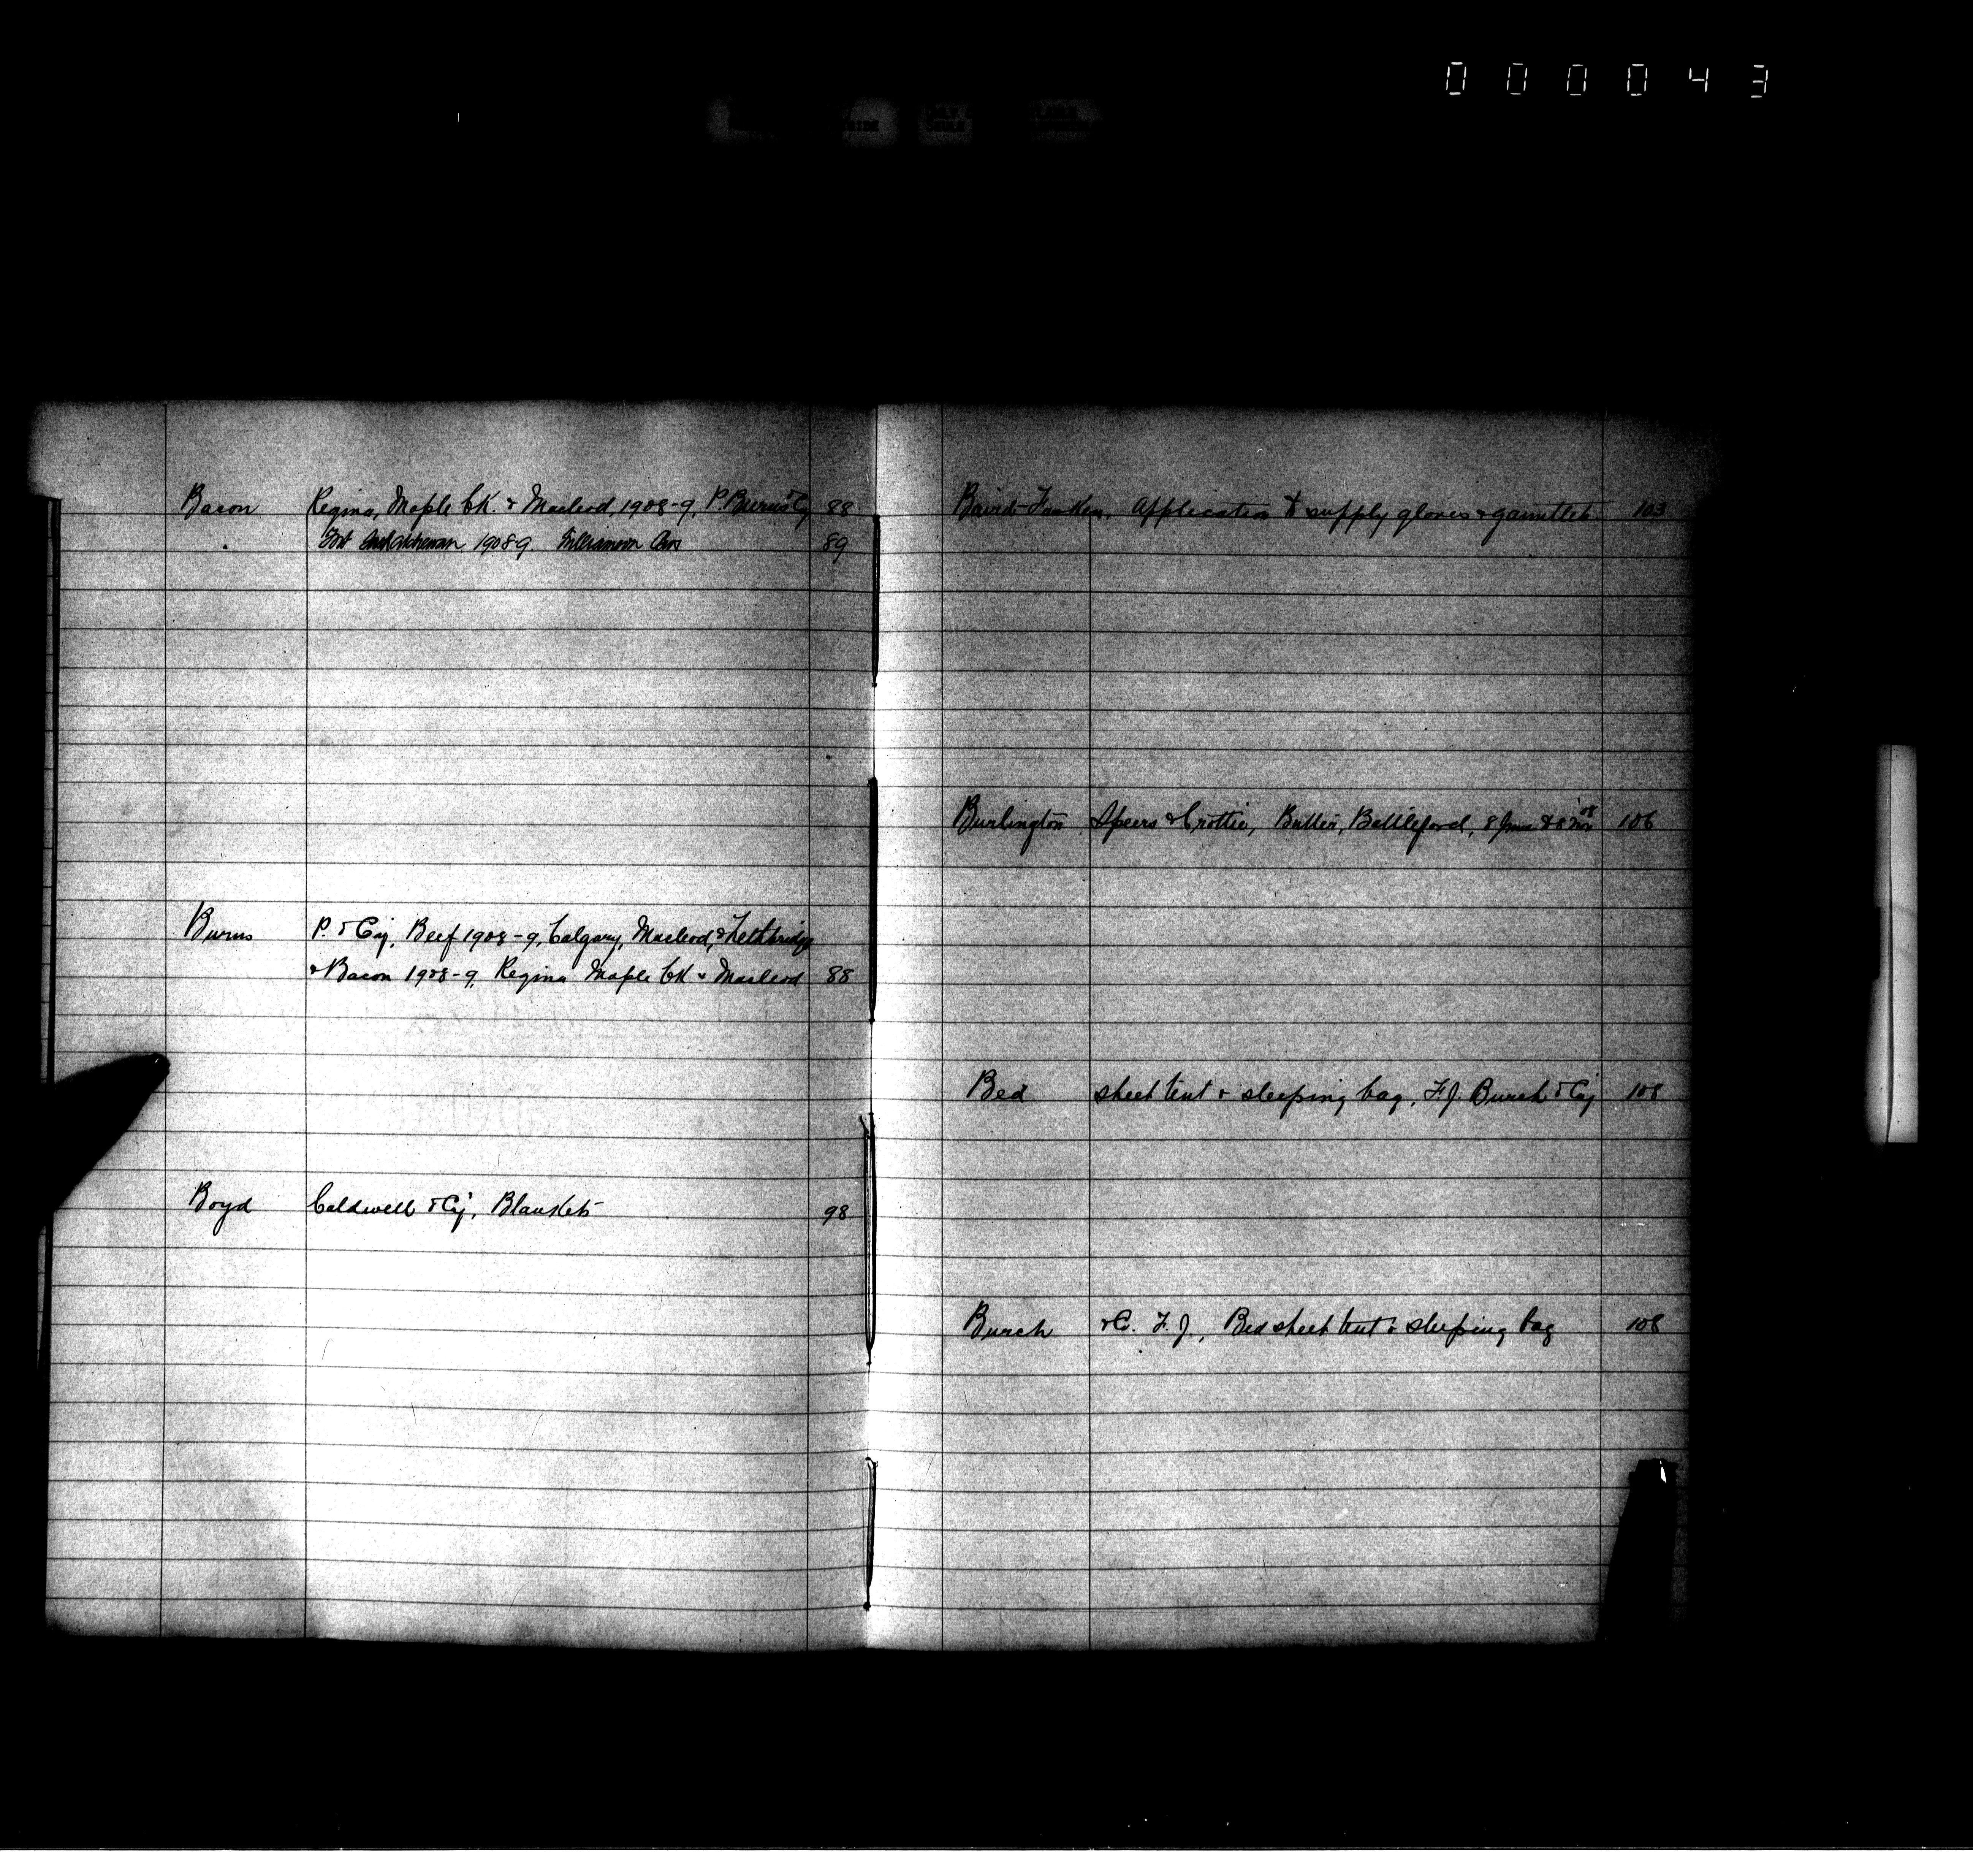 000043
Bacon Regina, Maple Ck. & Macleod, 1908-9, P. Burns & Coy 88
Fort Saskatchewan 1908-9. Bros 89
Burns P. & Coy, Beef 1908-9, Calgary, Macleod, & Lethbridge
& Bacon 1908-9, Regina Maple Ck & Macleod 88
Boyd Caldwell & Coy, Blankets 98
Baird Application to supply gloves & gauntlets. 103
Burlington Speers & Crottie, Butter, Battleford, 106
Bed sheet tent & sleeping bag, F.J. Burch & Coy 108
Burch & Co. F. J, Bed sheet tent & sleeping bag 108